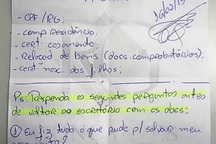 - CPF/RG;
- comp. Residência;
- cert. casamento
- Relacad de bens (docs comprobatórios);
- cert. nasc. dos filhos;
Ps: Responda as seguintes perguntas antes
de voltar ao escritório com os docs:
① Eu fiz tudo o que pude p/ salvar meu